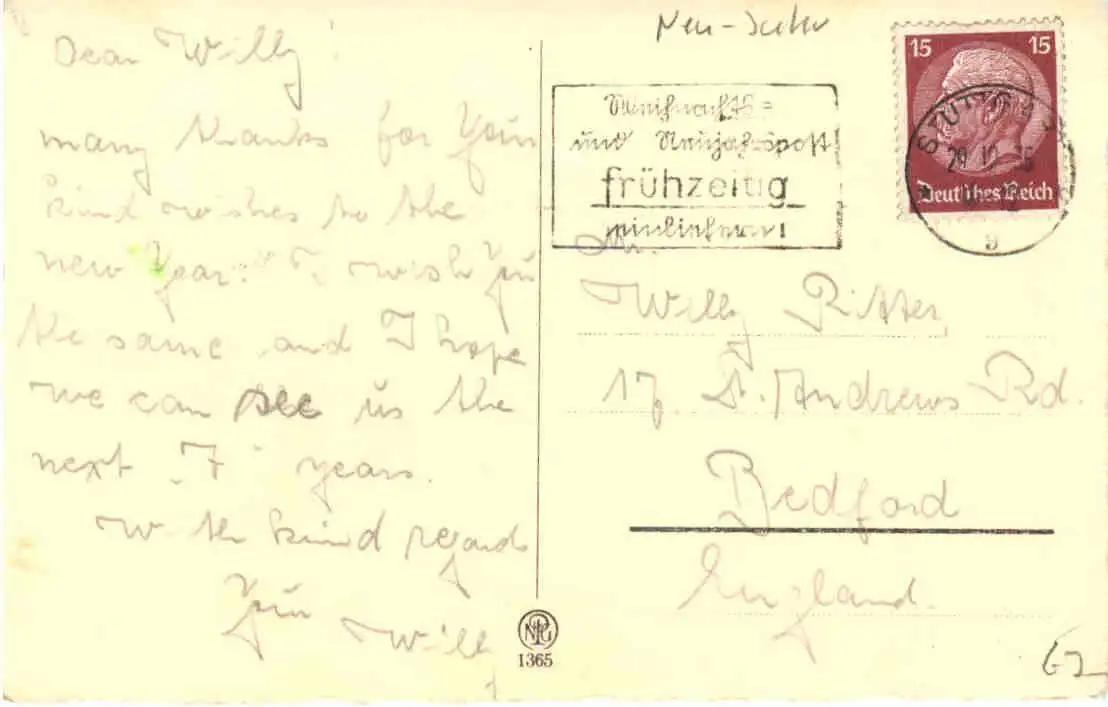 Dear Willy!
many thanks for Your
kind wishes to the
new Year. I wish You
the same and I hope
we can see us the
next „7“ years.
With kind regards
Your
Willy
Weihnachts=
und Neujahrspost
frühzeitig
einliefern!
15 15
STUTTGART
29.12.
9
Deutsches Reich
Mr.
Willy Ritter,
17, St. Andrews Rd.
Bedford
England.
NPG
1365